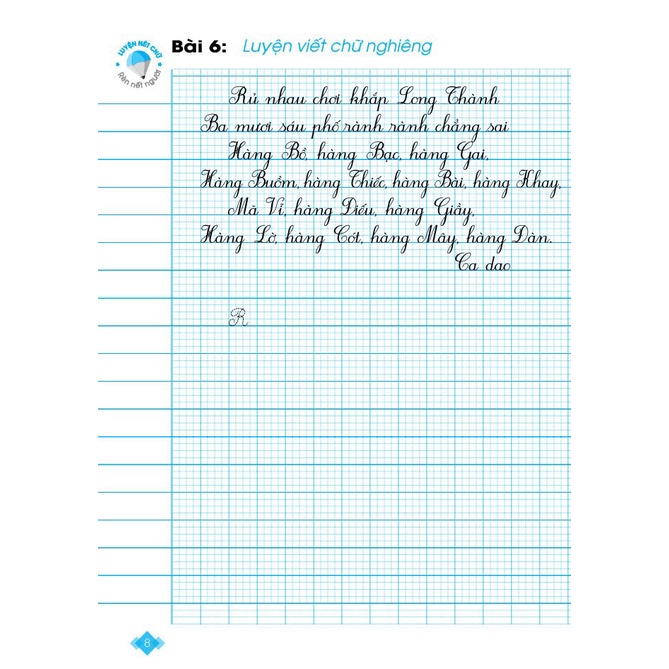 LUYỆN NÉT CHỮ
Rèn nết người
Bài 6: Luyện viết chữ nghiêng
Rủ nhau chơi khắp Long Thành
Ba mươi sáu phố rành rành chẳng sai
Hàng Bồ, hàng Bạc, hàng Gai,
Hàng Buồm, hàng Thiếc, hàng Bài, hàng Khay,
Mã Vĩ, hàng Điếu, hàng Giầy,
Hàng Lờ, hàng Cót, hàng Mây, hàng Đàn.
Ca dao
R
8